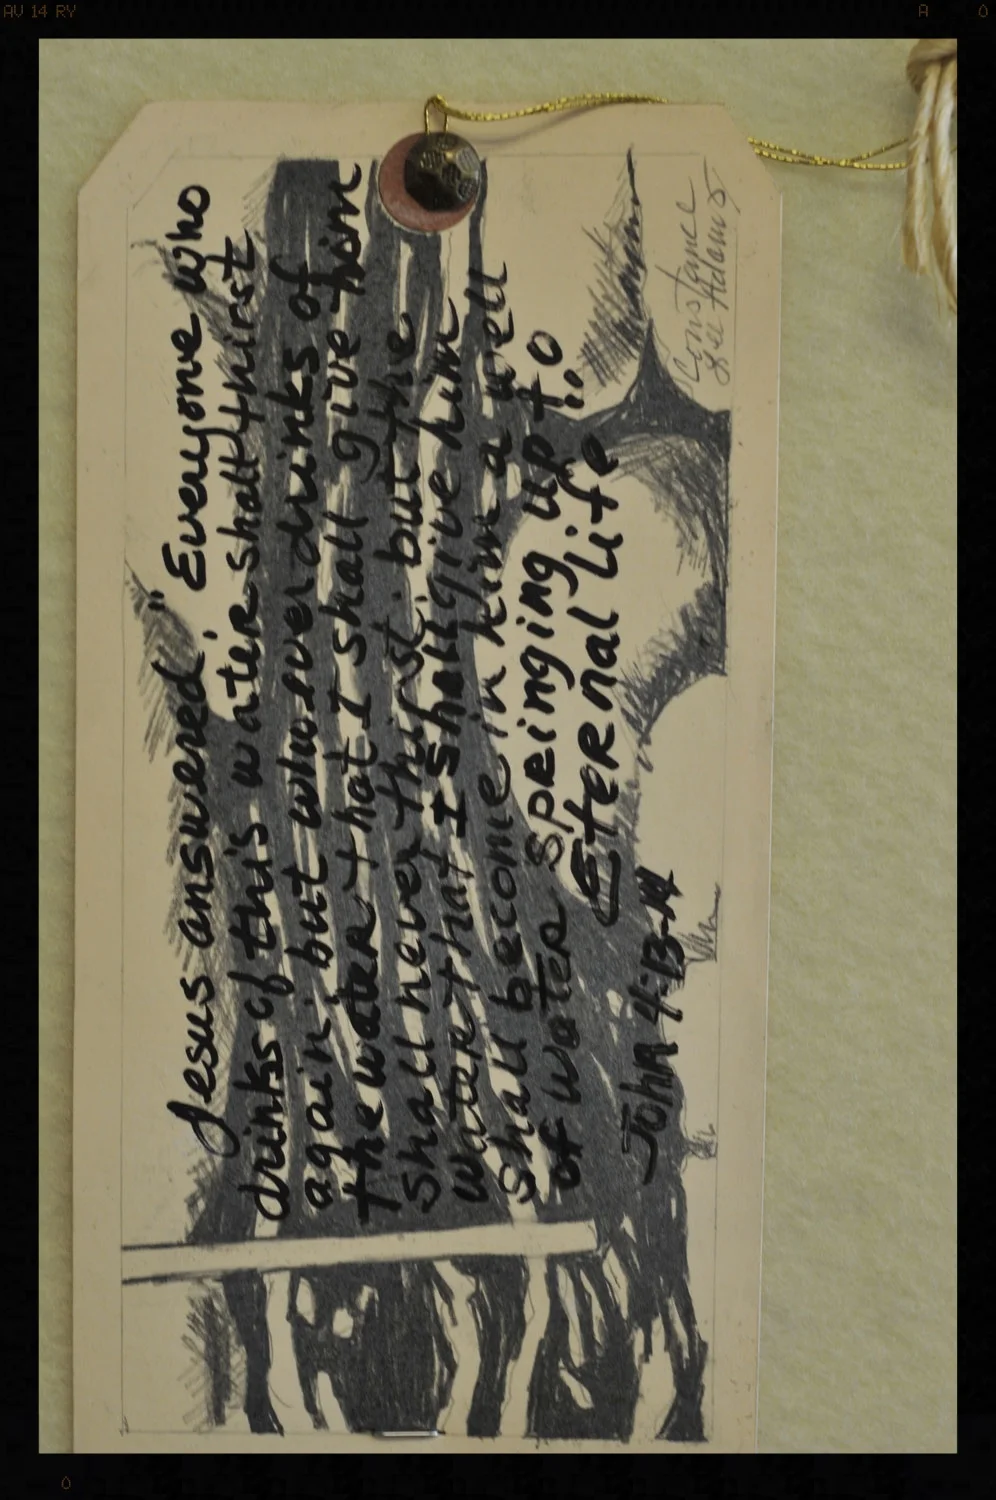 Jesus answered, "Everyone who
drinks of this water shall thirst
again; but whoever drinks of
the water that I shall give him
shall never thirst; but the
water that I shall give him
shall become in him a well
of water springing up to
Eternal Life"
John 4:13-14
Constance
Lee Adams
AV 14 RY
A 0
0